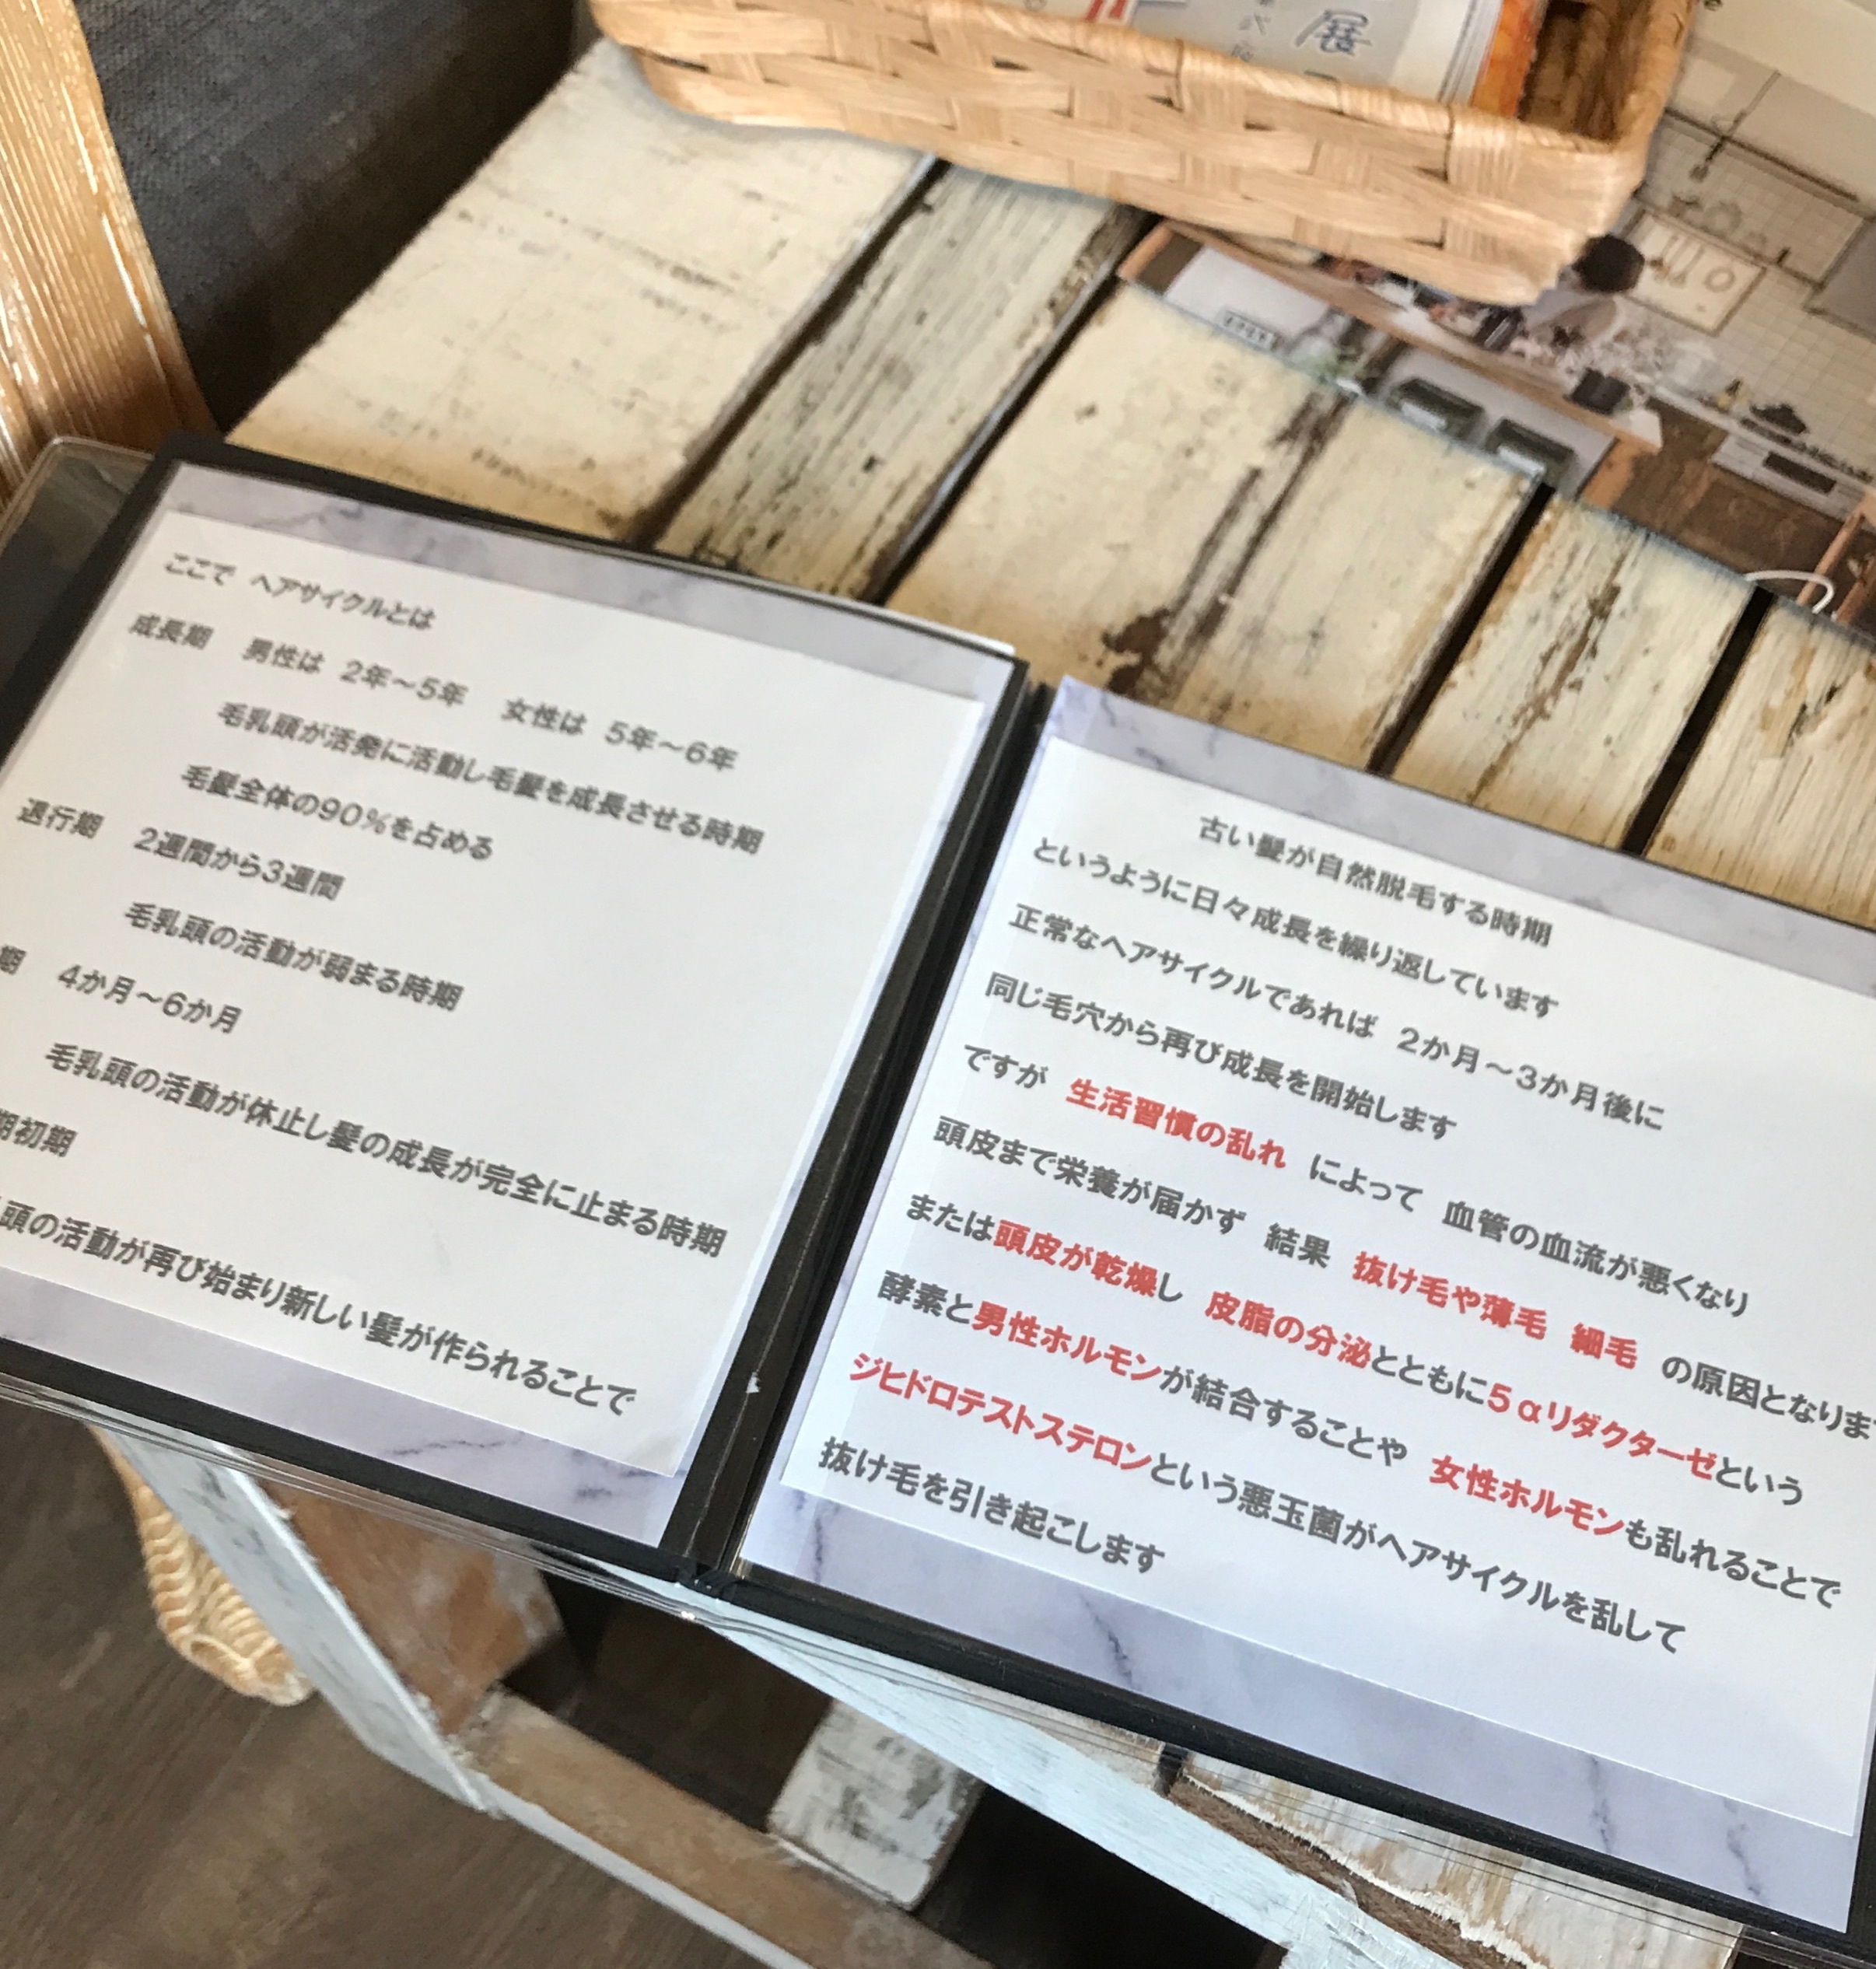 展
ここで ヘアサイクルとは
成長期 男性は 2年～5年 女性は 5年～6年
毛乳頭が活発に活動し毛髪を成長させる時期
毛髪全体の90%を占める
退行期 2週間から3週間
毛乳頭の活動が弱まる時期
期 4か月～6か月
毛乳頭の活動が休止し髪の成長が完全に止まる時期
期初期
頭の活動が再び始まり新しい髪が作られることで
古い髪が自然脱毛する時期
というように日々成長を繰り返しています
正常なヘアサイクルであれば 2か月～3か月後に
同じ毛穴から再び成長を開始します
ですが 生活習慣の乱れ によって 血管の血流が悪くなり
頭皮まで栄養が届かず 結果 抜け毛や薄毛 細毛 の原因となりま
または頭皮が乾燥し 皮脂の分泌とともに5αリダクターゼという
酵素と男性ホルモンが結合することや 女性ホルモンも乱れることで
ジヒドロテストステロンという悪玉菌がヘアサイクルを乱して
抜け毛を引き起こします